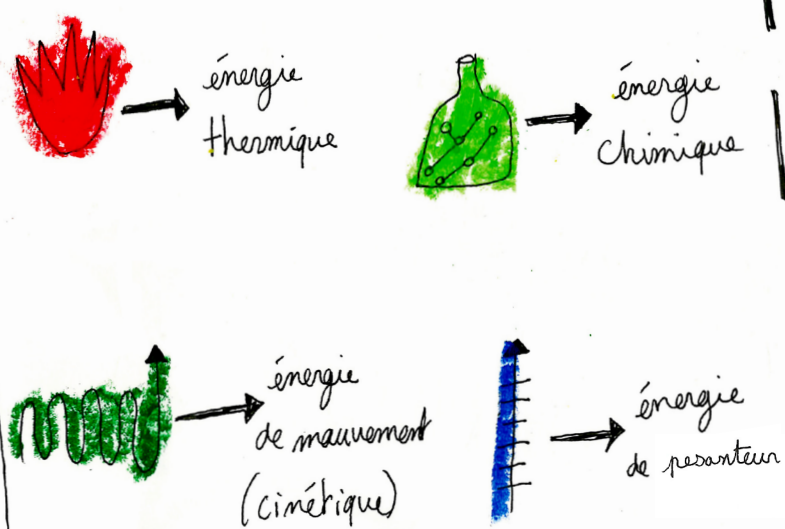 énergie
thermique
énergie
chimique
énergie
de mauvement
(cinétique)
énergie
de pesanteur